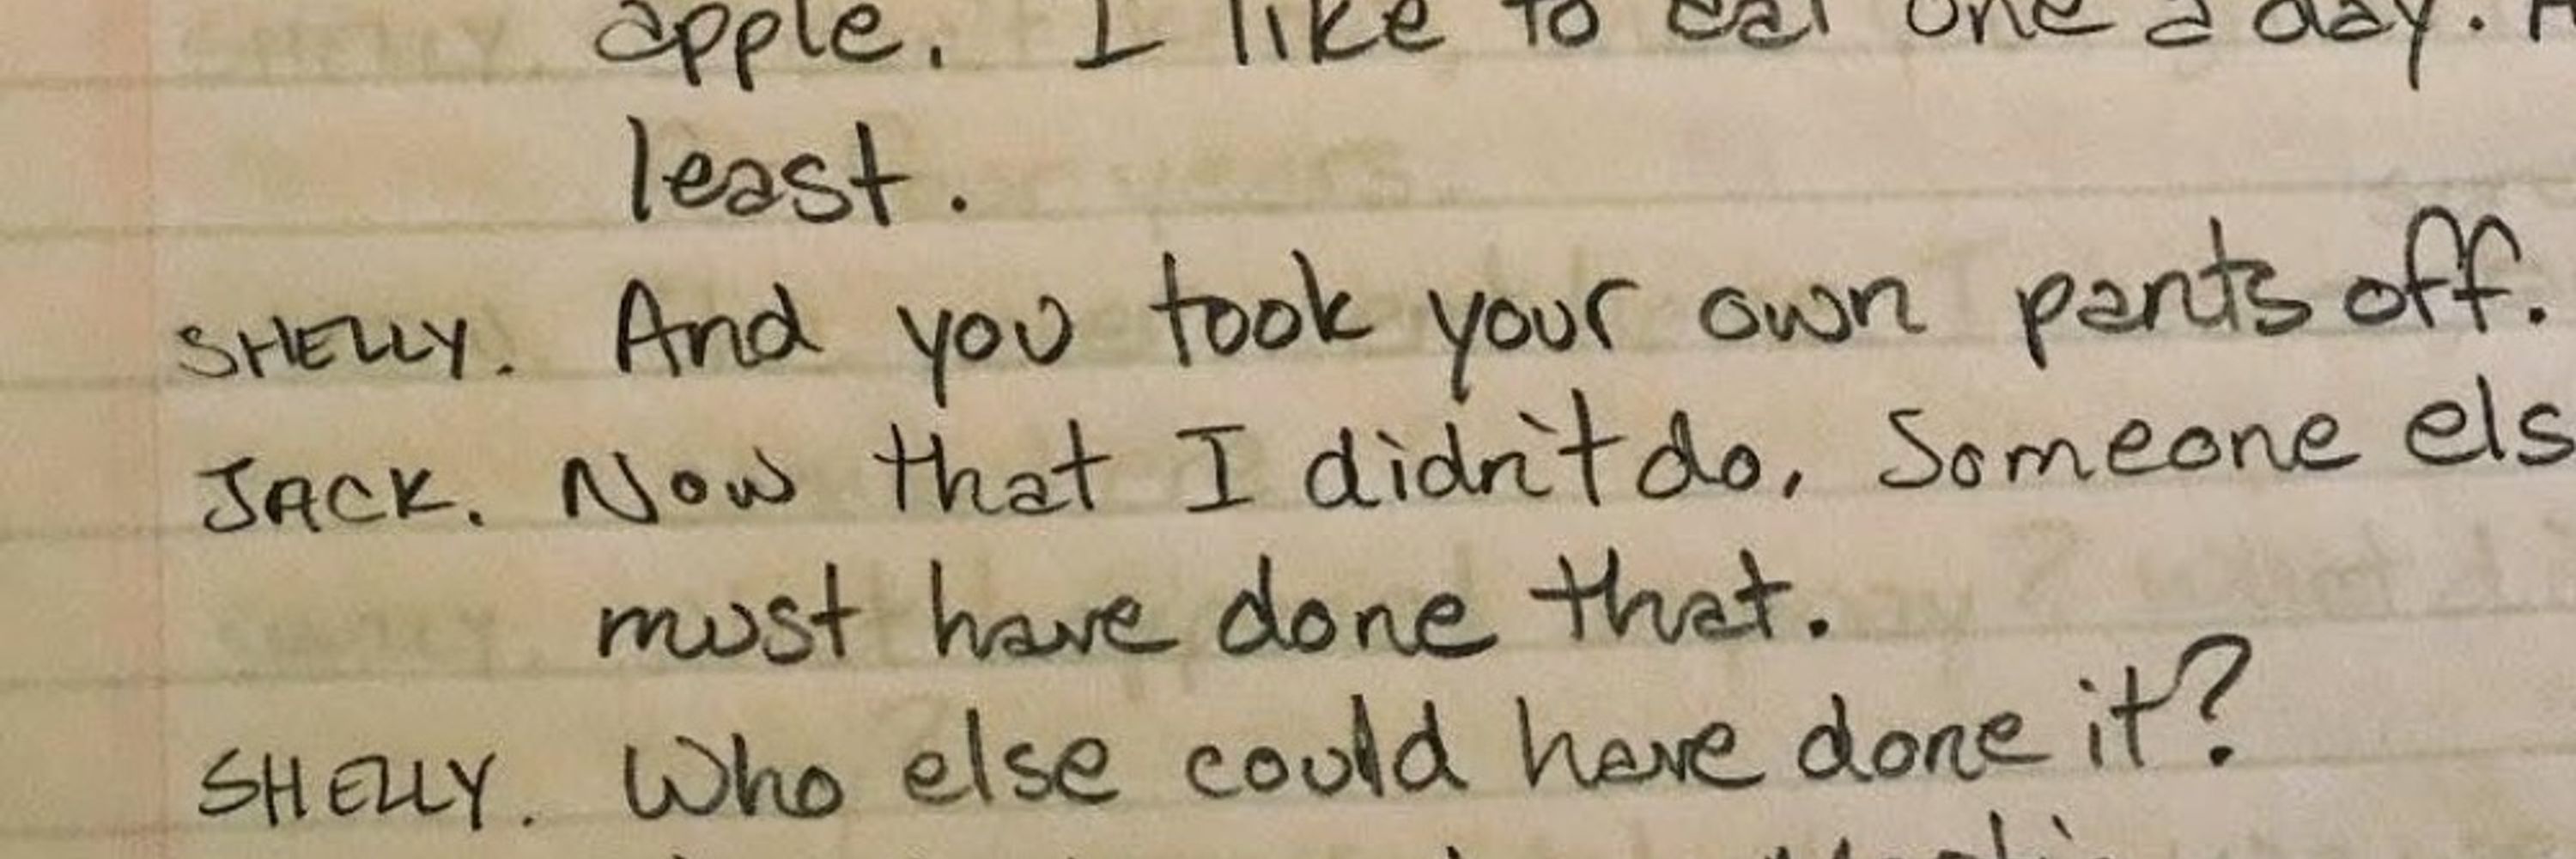 apple. I like to eat one a day.
least.
SHELLY. And you took your own pants off.
JACK. Now that I didn't do. Someone els
must have done that.
SHELLY. Who else could have done it?